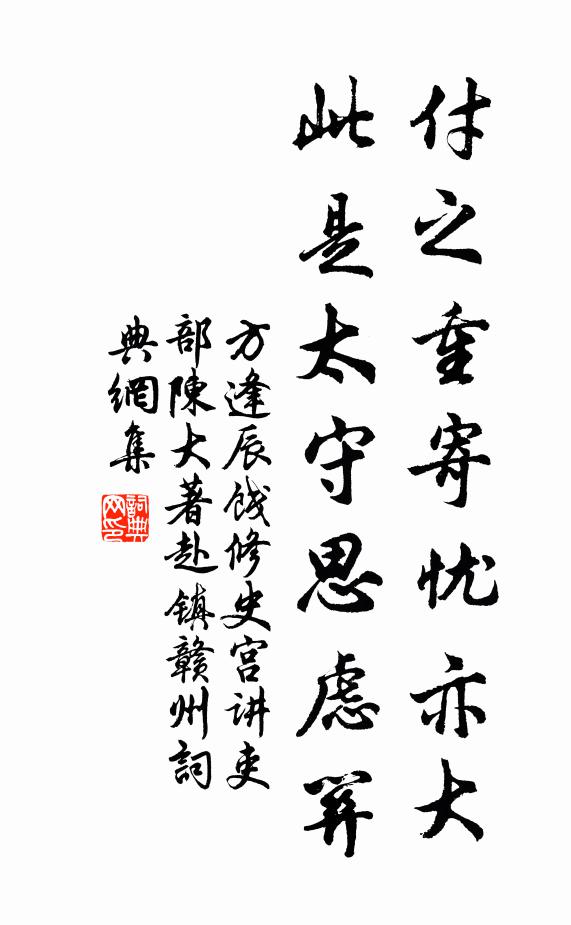 付之重寄忧亦大
此是太守思虑
方逢辰饯修史宫讲吏
部陳大著赴镇赣州詞
典網集
詞典
网印